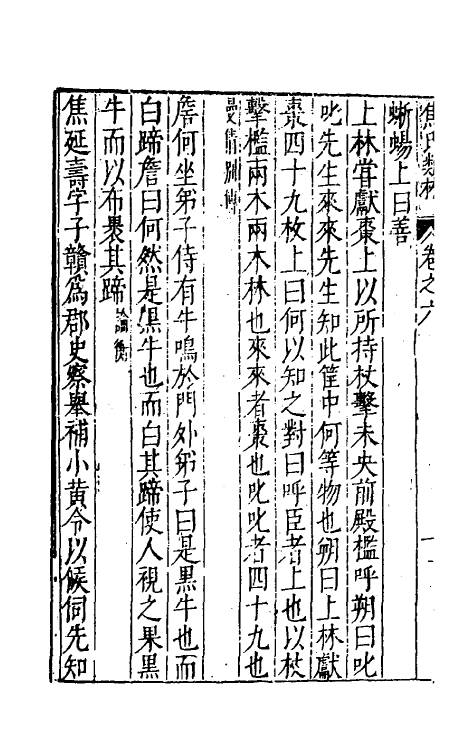 焦氏類林 卷之六
蜥蜴上曰善
上林嘗獻棗上以所持杖擊未央前殿檻呼朔曰叱
叱先生來來先生知此筐中何等物也朔曰上林獻
棗四十九枚上曰何以知之對曰呼臣者上也以杖
擊檻兩木兩木林也來來者棗也叱叱者四十九也
曼倩別傳
詹何坐弟子侍有牛鳴於門外弟子曰是黑牛也而
白蹄詹曰何然是黑牛也而白其蹄使人視之果黑
牛而以布褁其蹄論衡
焦延壽字子贛爲郡史察舉補小黃令以候伺先知